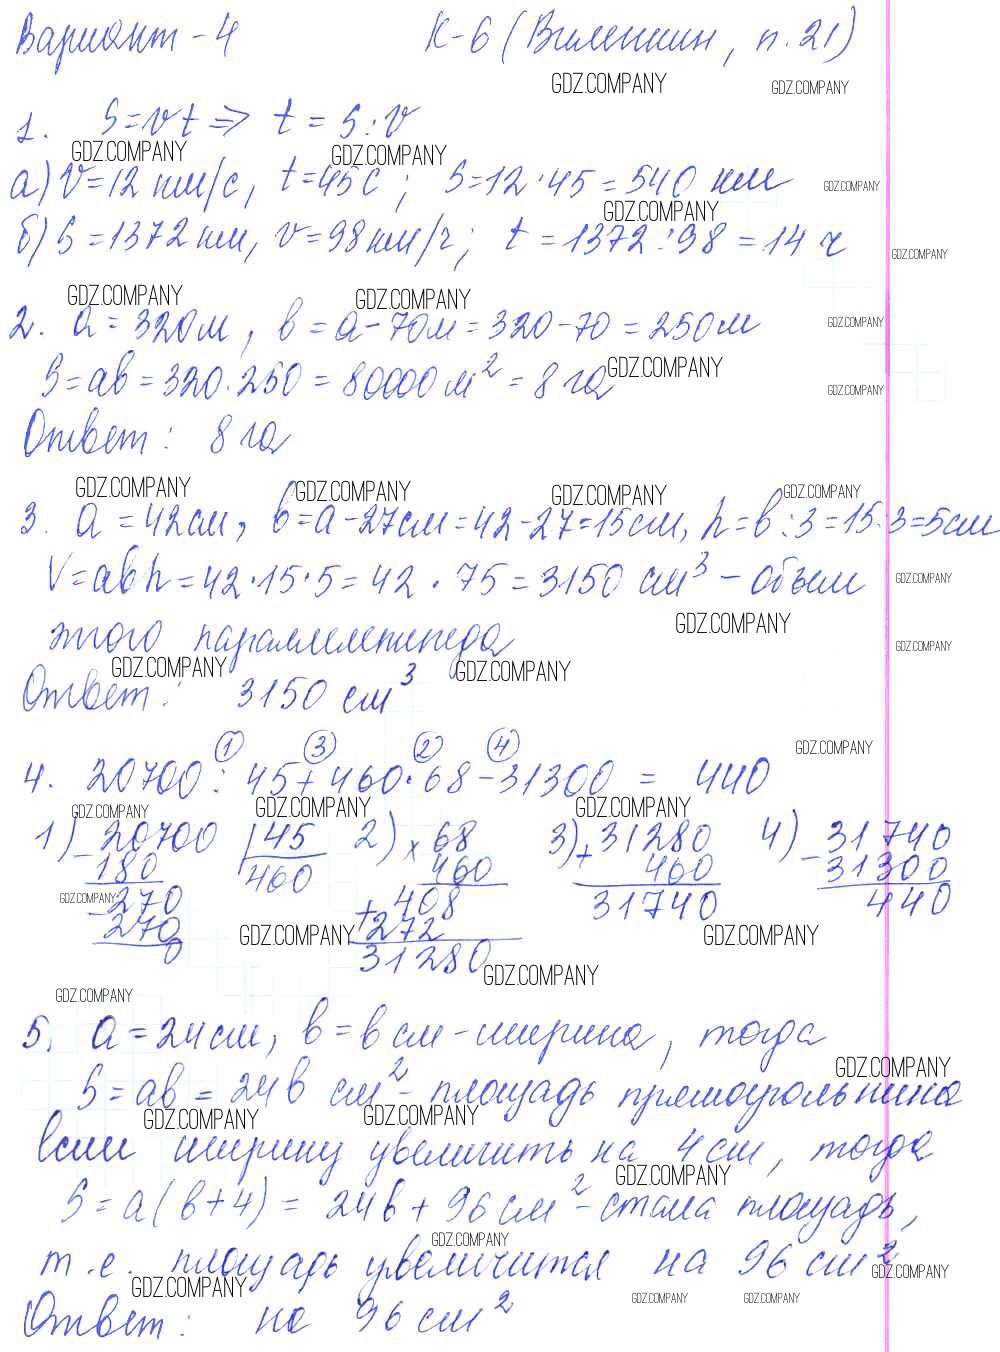 Вариант - 4 К-6 (Виленкин, п. 21)
GDZ.COMPANY GDZ.COMPANY
1. S=vt => t = S:v
GDZ.COMPANY GDZ.COMPANY
а) V=12 км/с, t=45с; S=12·45=540 км GDZ.COMPANY
GDZ.COMPANY
б) S=1372 км, v=98 км/ч; t=1372:98=14 ч GDZ.COMPANY
GDZ.COMPANY GDZ.COMPANY
2. a=320м, b=a-70м=320-70=250м GDZ.COMPANY
S=ab=320·250=80000м²=8 га GDZ.COMPANY
GDZ.COMPANY
Ответ: 8 га
GDZ.COMPANY GDZ.COMPANY GDZ.COMPANY GDZ.COMPANY
3. a=42см, b=a-27см=42-27=15см, h=b:3=15:3=5см
V=abh=42·15·5=42·75=3150 см³ - объем GDZ.COMPANY
GDZ.COMPANY
этого параллелепипеда GDZ.COMPANY
GDZ.COMPANY GDZ.COMPANY
Ответ: 3150 см³
1 3 2 4 GDZ.COMPANY
4. 20700:45+460·68-31300 = 440
GDZ.COMPANY GDZ.COMPANY GDZ.COMPANY
1) - 20700 45 2) × 68 3) + 31280 4) - 31740
180 460 460 460 31300
GDZ.COMPANY - 270 + 408 31740 440
270 272
GDZ.COMPANY GDZ.COMPANY
0 31280
GDZ.COMPANY
GDZ.COMPANY
5. a=24см, b=b см - ширина, тогда
GDZ.COMPANY
S=ab=24b см² - площадь прямоугольника
GDZ.COMPANY GDZ.COMPANY
Если ширину увеличить на 4см, тогда
GDZ.COMPANY
S=a(b+4)=24b+96см² - стала площадь,
GDZ.COMPANY
т.е. площадь увеличится на 96см²
GDZ.COMPANY GDZ.COMPANY
GDZ.COMPANY GDZ.COMPANY
Ответ: на 96см²